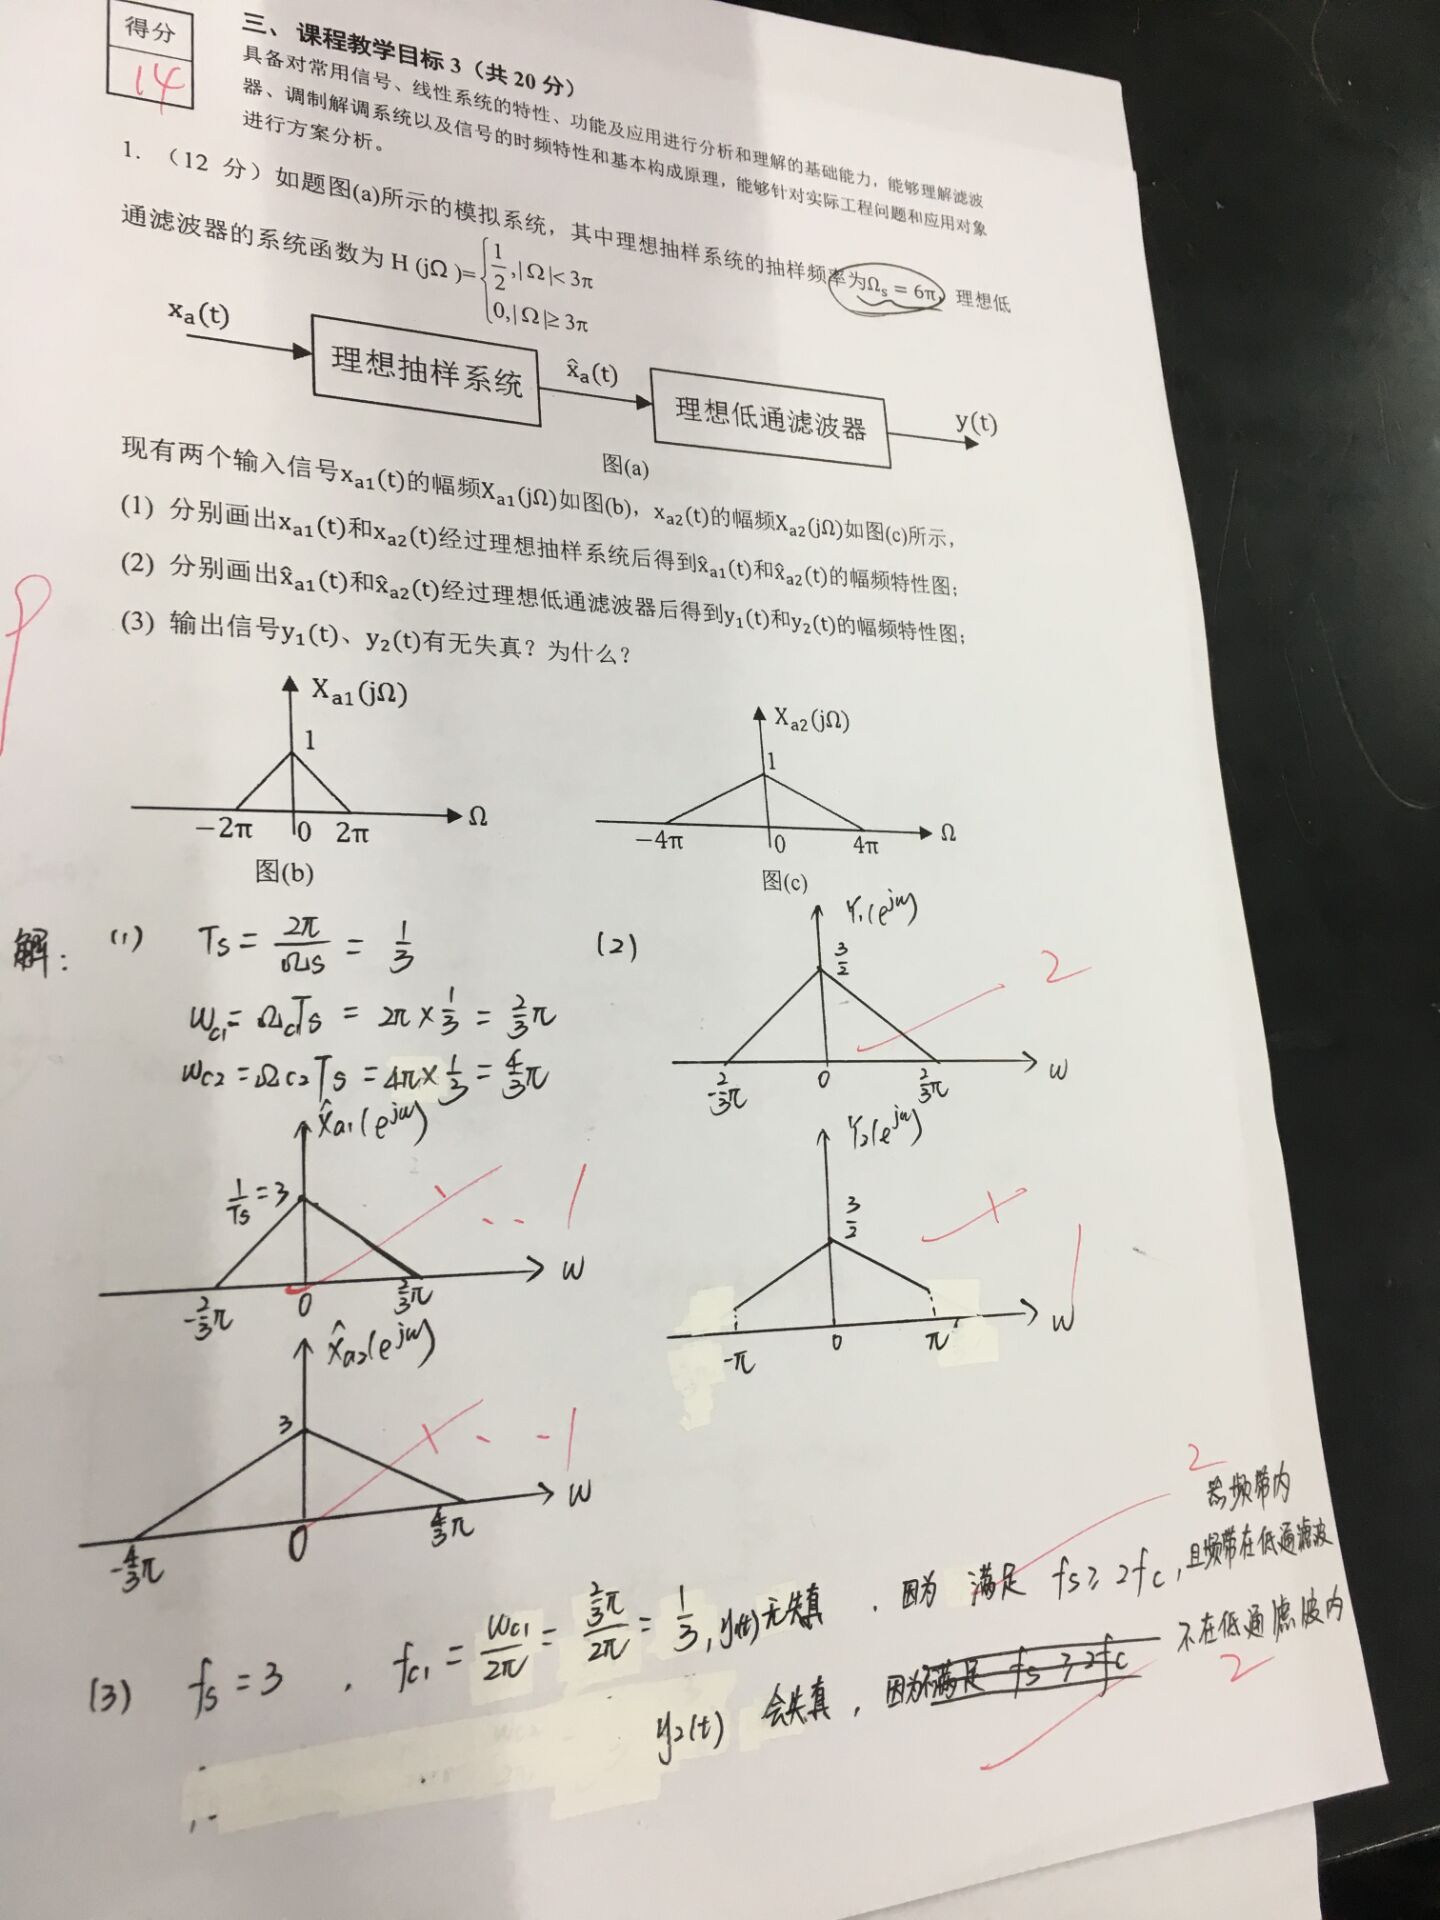 得分
14
三、课程教学目标 3（共 20 分）
具备对常用信号、线性系统的特性、功能及应用进行分析和理解的基础能力，能够理解滤波
器、调制解调系统以及信号的时频特性和基本构成原理，能够针对实际工程问题和应用对象
进行方案分析。
1. （12 分）如题图(a)所示的模拟系统，其中理想抽样系统的抽样频率为Ωs = 6π，理想低
通滤波器的系统函数为 H (jΩ )={1/2,|Ω|< 3π
0,|Ω|≥ 3π
xa(t)
理想抽样系统
x̂a(t)
理想低通滤波器
y(t)
图(a)
现有两个输入信号xa1(t)的幅频Xa1(jΩ)如图(b)，xa2(t)的幅频Xa2(jΩ)如图(c)所示，
(1) 分别画出xa1(t)和xa2(t)经过理想抽样系统后得到x̂a1(t)和x̂a2(t)的幅频特性图；
(2) 分别画出x̂a1(t)和x̂a2(t)经过理想低通滤波器后得到y1(t)和y2(t)的幅频特性图；
(3) 输出信号y1(t)、y2(t)有无失真？为什么？
Xa1(jΩ)
1
−2π 0 2π Ω
图(b)
Xa2(jΩ)
1
−4π 0 4π Ω
图(c)
解： (1) Ts = 2π/Ωs = 1/3
wc1 = Ωc1Ts = 2π × 1/3 = 2/3π
wc2 = Ωc2Ts = 4π × 1/3 = 4/3π
X̂a1(e^jw)
1/Ts = 3
-2/3π 0 2/3π w
1
X̂a2(e^jw)
3
-4/3π 0 4/3π w
-1
(2)
Y1(e^jw)
3/2
2
-2/3π 0 2/3π w
Y2(e^jw)
3/2
1
-π 0 π w
(3) fs = 3 , fc1 = wc1/2π = 2/3π/2π = 1/3, y1(t)无失真 , 因为 满足 fs ≥ 2fc, 且频带在低通滤波
器频带内
2
y2(t) 会失真 , 因为不满足 fs ≥ 2fc 不在低通滤波内
2